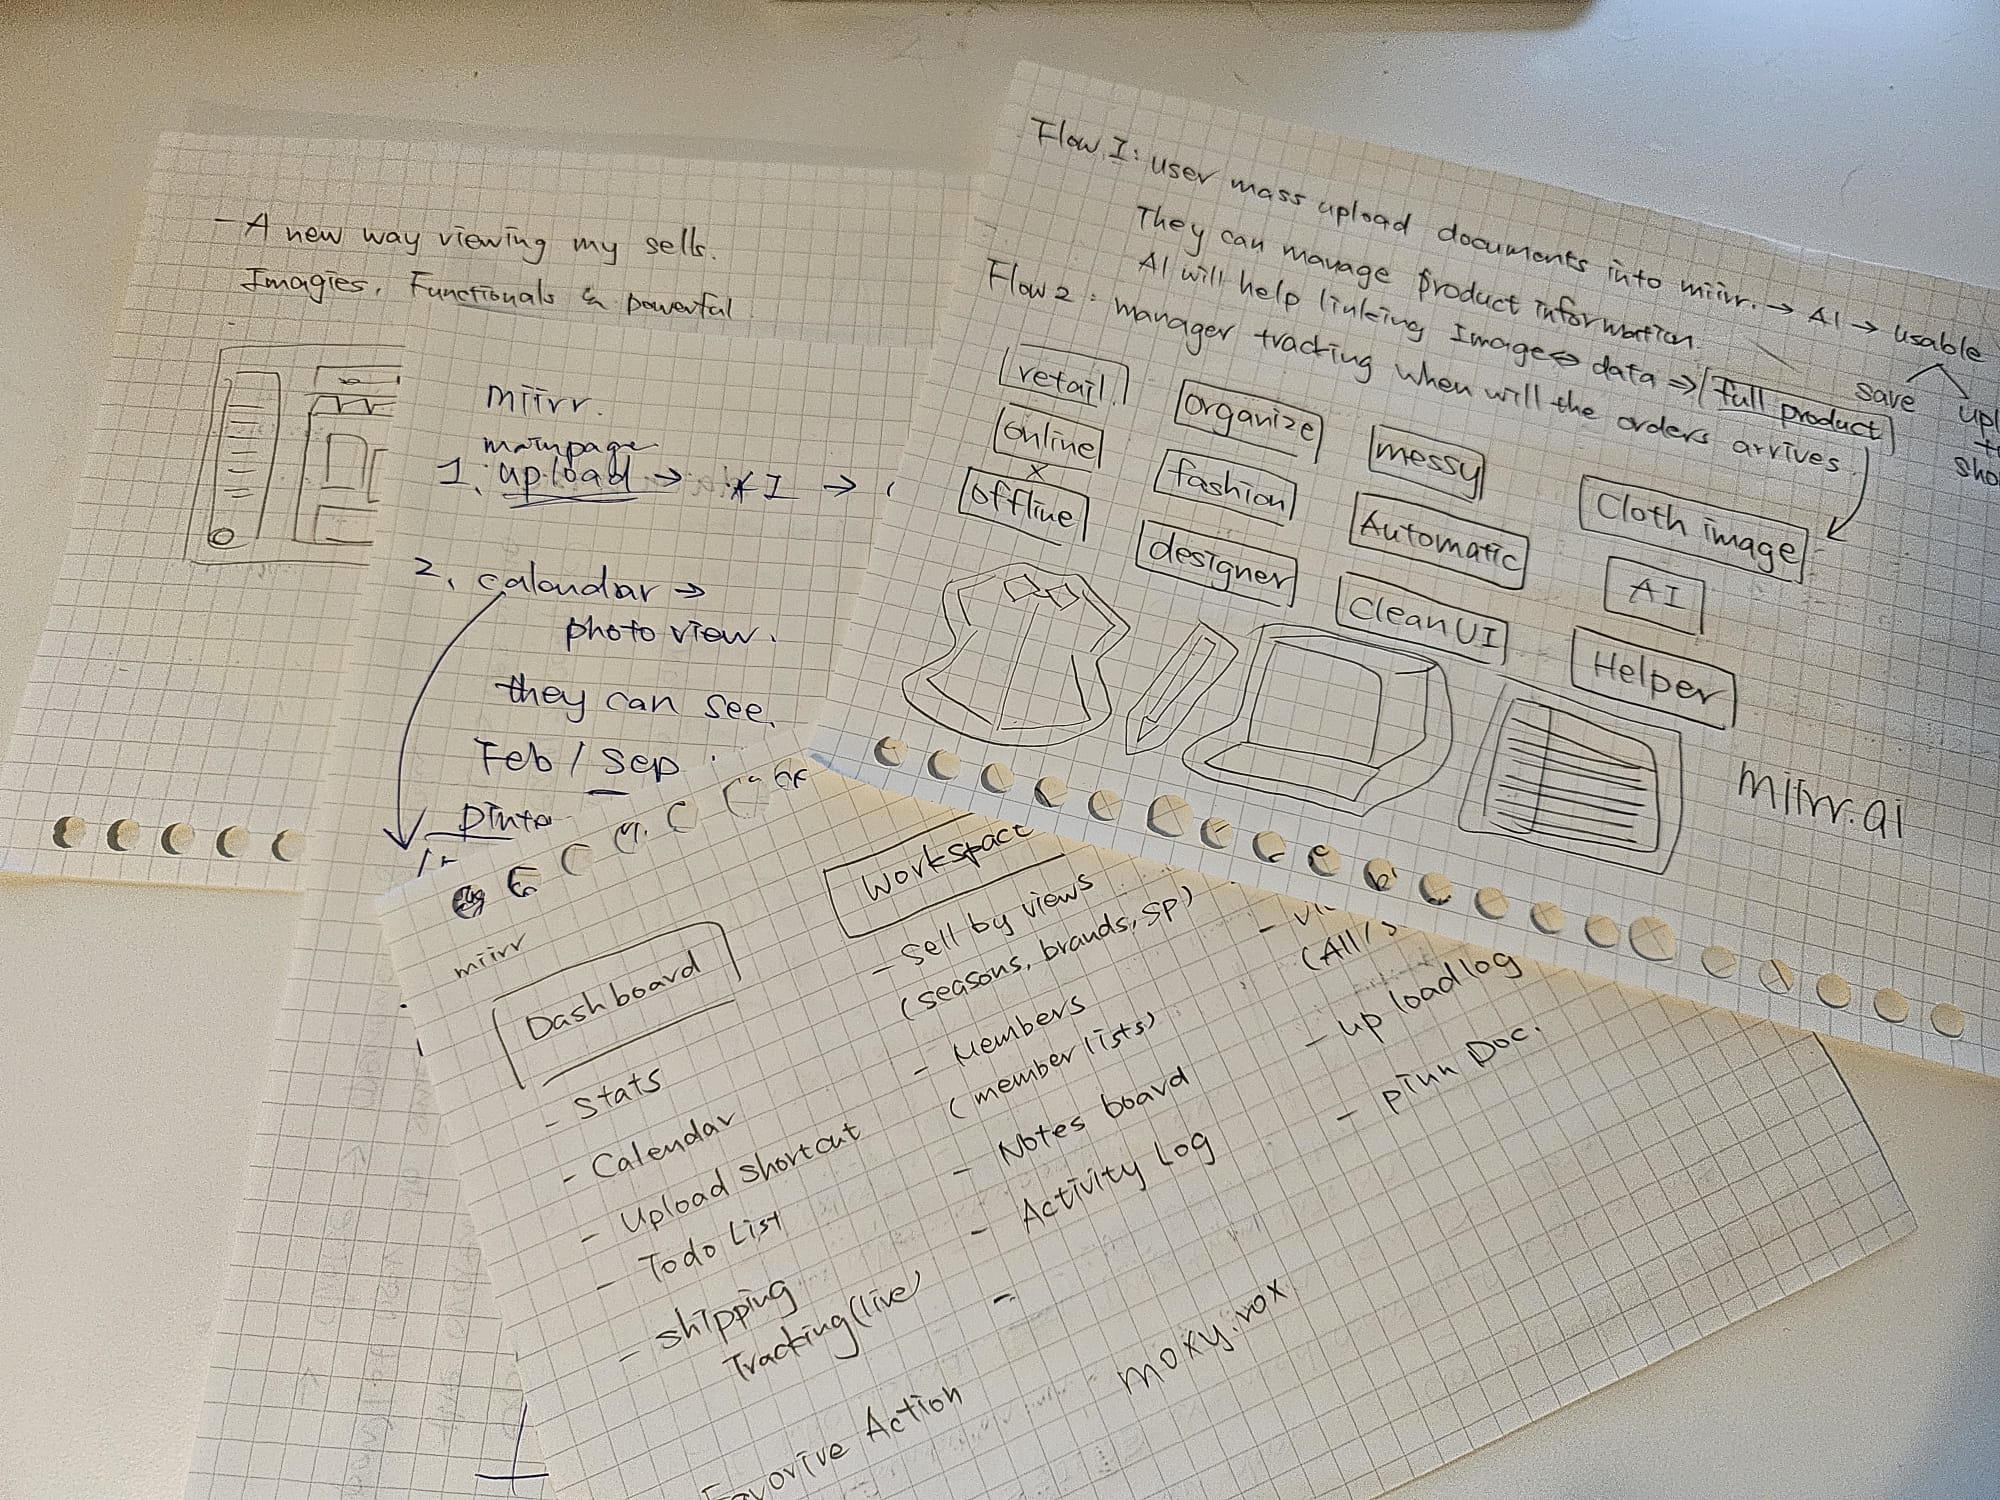 - A new way viewing my sells.
Imagies, Functionals & powerful
miirr.
mainpage
1. upload → AI →
2. calandar →
photo view.
they can see.
Feb / Sep
Flow I: user mass upload documents into miirr. → AI → usable
save
They can manage product information.
AI will help linking Image ⇔ data ⇒ full product
Flow 2: manager tracking when will the orders arrives.
retail
organize
messy
Cloth image
online
x
offline
fashion
Automatic
AI
designer
clean UI
Helper
miirr.ai
miirr
Dashboard
- Stats
- Calendar
- Upload shortcut
- Todo List
- shipping
Tracking (live
Action
Workspace
- Sell by views
(seasons, brands, sp)
- Members
(member lists)
- Notes board
- Activity Log
-
(All/
- up load log
- pinn Doc.
moxy.rox